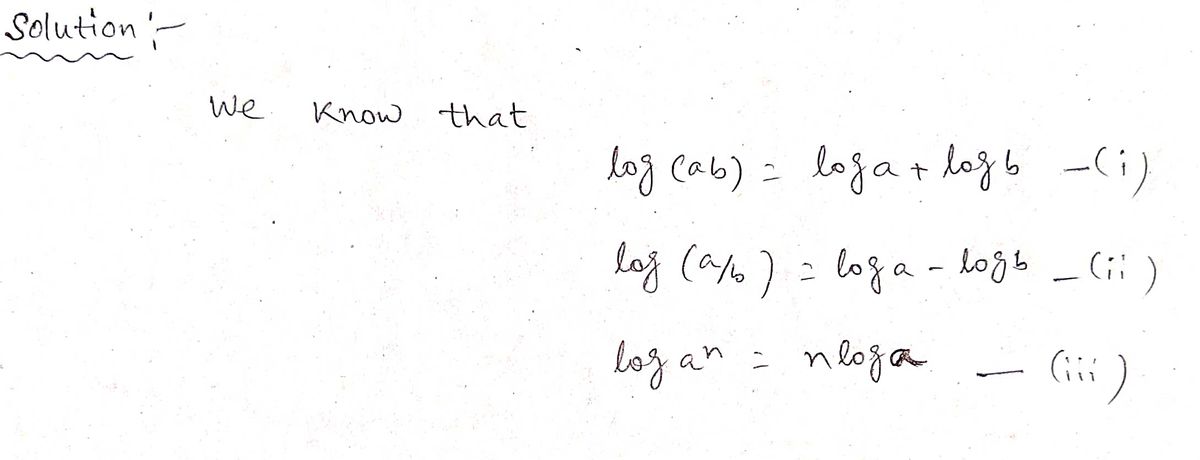 Solution :-
We know that
log (ab) = log a + log b — (i)
log (a/b) = log a - log b — (ii)
log aⁿ = n log a — (iii)